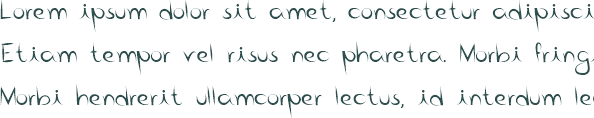 Lorem ipsum dolor sit amet, consectetur adipisci
Etiam tempor vel risus nec pharetra. Morbi fring
Morbi hendrerit ullamcorper lectus, id interdum le